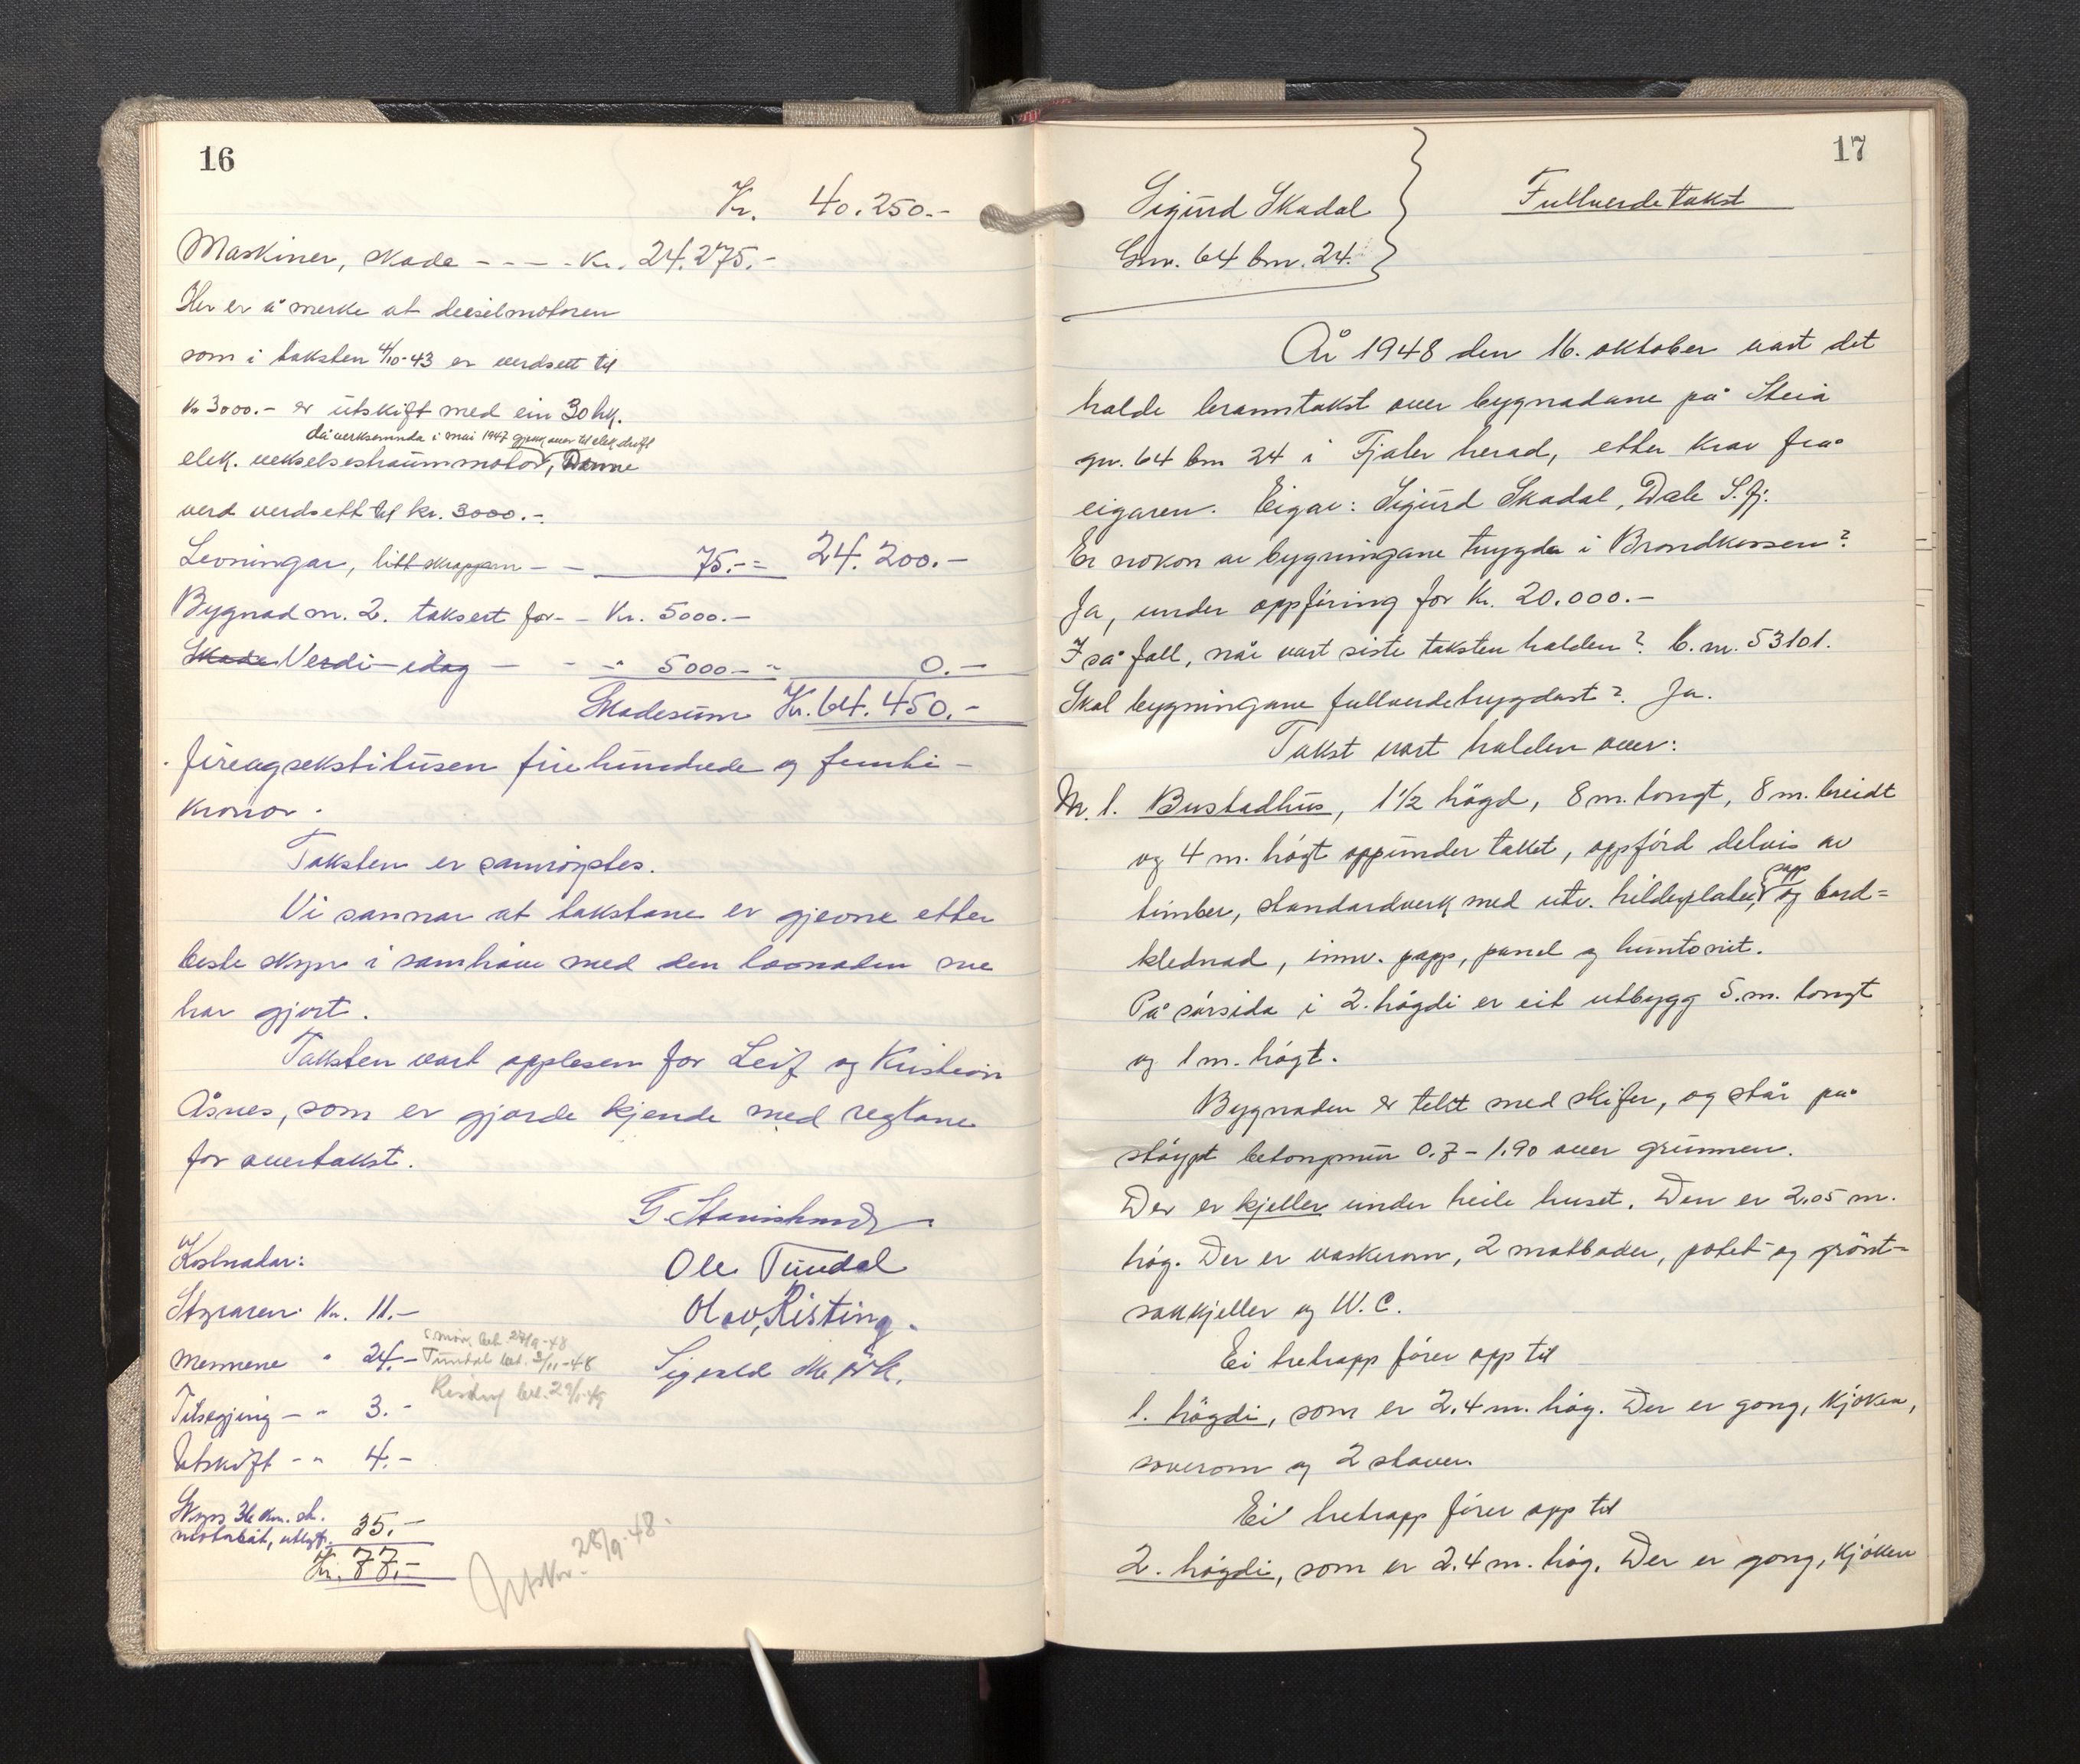 16
Kr. 40.250.-
Maskiner, skade - - - - Kr. 24.275.-
Her er å merke at deiselmotoren
som i taksten 4/10-43 er verdsett til
kr 3000.- er utskift med ein 30 hk.
då verksemda i mai 1947 gjekk over til elek. drift
elek. vekselstraummotor, Denne
verd verdsett til kr. 3000.-
Levningar, litt skrapjern - - 75.- = 24.200.-
Bygnad nr. 2. taksert for - - Kr. 5000.-
Skade Verdi idag - - " 5000.- " 0.-
Skadesum Kr. 64.450.-
fireogsekstitusen firehundrede og femti-
kronor.
Taksten er samrøystes.
Vi sannar at takstane er gjevne etter
beste skyn i samhøve med den lovnaden me
har gjort.
Taksten vart opplesen for Leif og Kristian
Åsnes, som er gjorde kjende med reglane
for overtakst.
Ole Tundal
Olav Risting.
Sigvald Mørk.
Kostnadar:
Styraren Kr. 11.-
Mennene " 24.-
Tundal bet. 2/11-48
Tilsegjing - " 3.-
Utskrift - " 4.-
Skyss 36 km. sk.
motorbåt, utlegg. 35.-
Kr. 77.-
Utskr. 28/9-48.
17
Sigurd Skadal
Gnr. 64 bnr. 24.
Fullverdetakst
År 1948 den 16. oktober vart det
halde branntakst over bygnadane på Steia
gnr. 64 bnr 24 i Fjaler herad, etter krav frå
eigaren. Eigar: Sigurd Skadal, Dale S.fj.
Er nokon av bygningane trygda i Brandkassen?
Ja, under oppføring for Kr. 20.000.-
I så fall, når vart siste taksten halden? B.nr. 53101.
Skal bygningane fullverdetrygdast? Ja.
Takst vart halden over:
Nr. 1. Bustadhus, 1 1/2 høgd, 8 m. langt, 8 m. breidt
og 4 m. høgt oppunder taket, oppførd delvis av
timber, standardverk med utv. hildeplater, papp og bord=
klednad, innv. papp, panel og huntonit.
På sørsida i 2. høgdi er eit utbygg 5. m. langt
og 1 m. høgt.
Bygnaden er tekt med skifer, og står på
støypt betongmur 0.7 - 1.90 over grunnen.
Der er kjeller under heile huset. Den er 2.05 m.
høg. Der er vaskerom, 2 matboder, potet- og grønt=
sakkjeller og W.C.
Ei tretrapp fører opp til
1. høgdi, som er 2.4 m. høg. Der er gong, kjøken,
soverom og 2 stover.
Ei tretrapp fører opp til
2. høgdi, som er 2.4 m. høg. Der er gong, kjøken